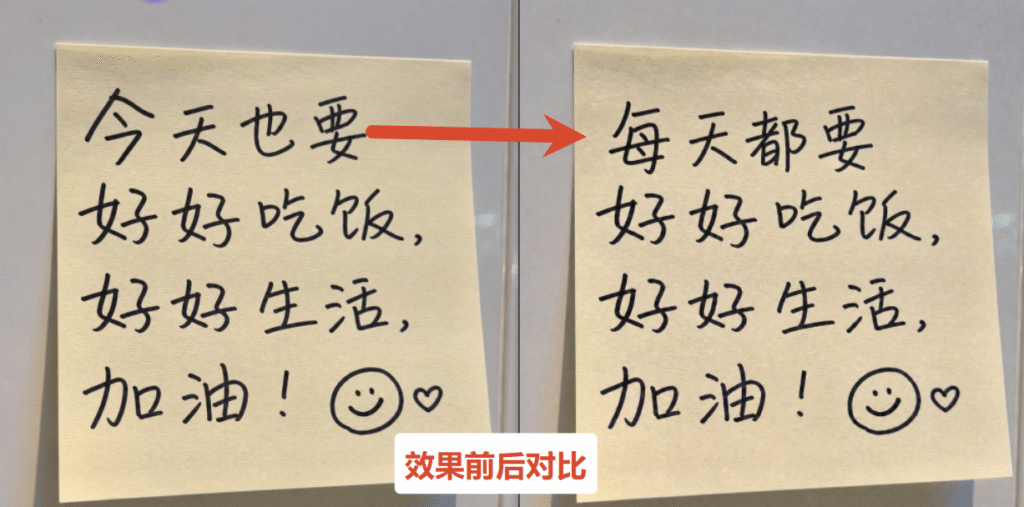 今天也要
好好吃饭,
好好生活,
加油!
每天都要
好好吃饭,
好好生活,
加油!
效果前后对比